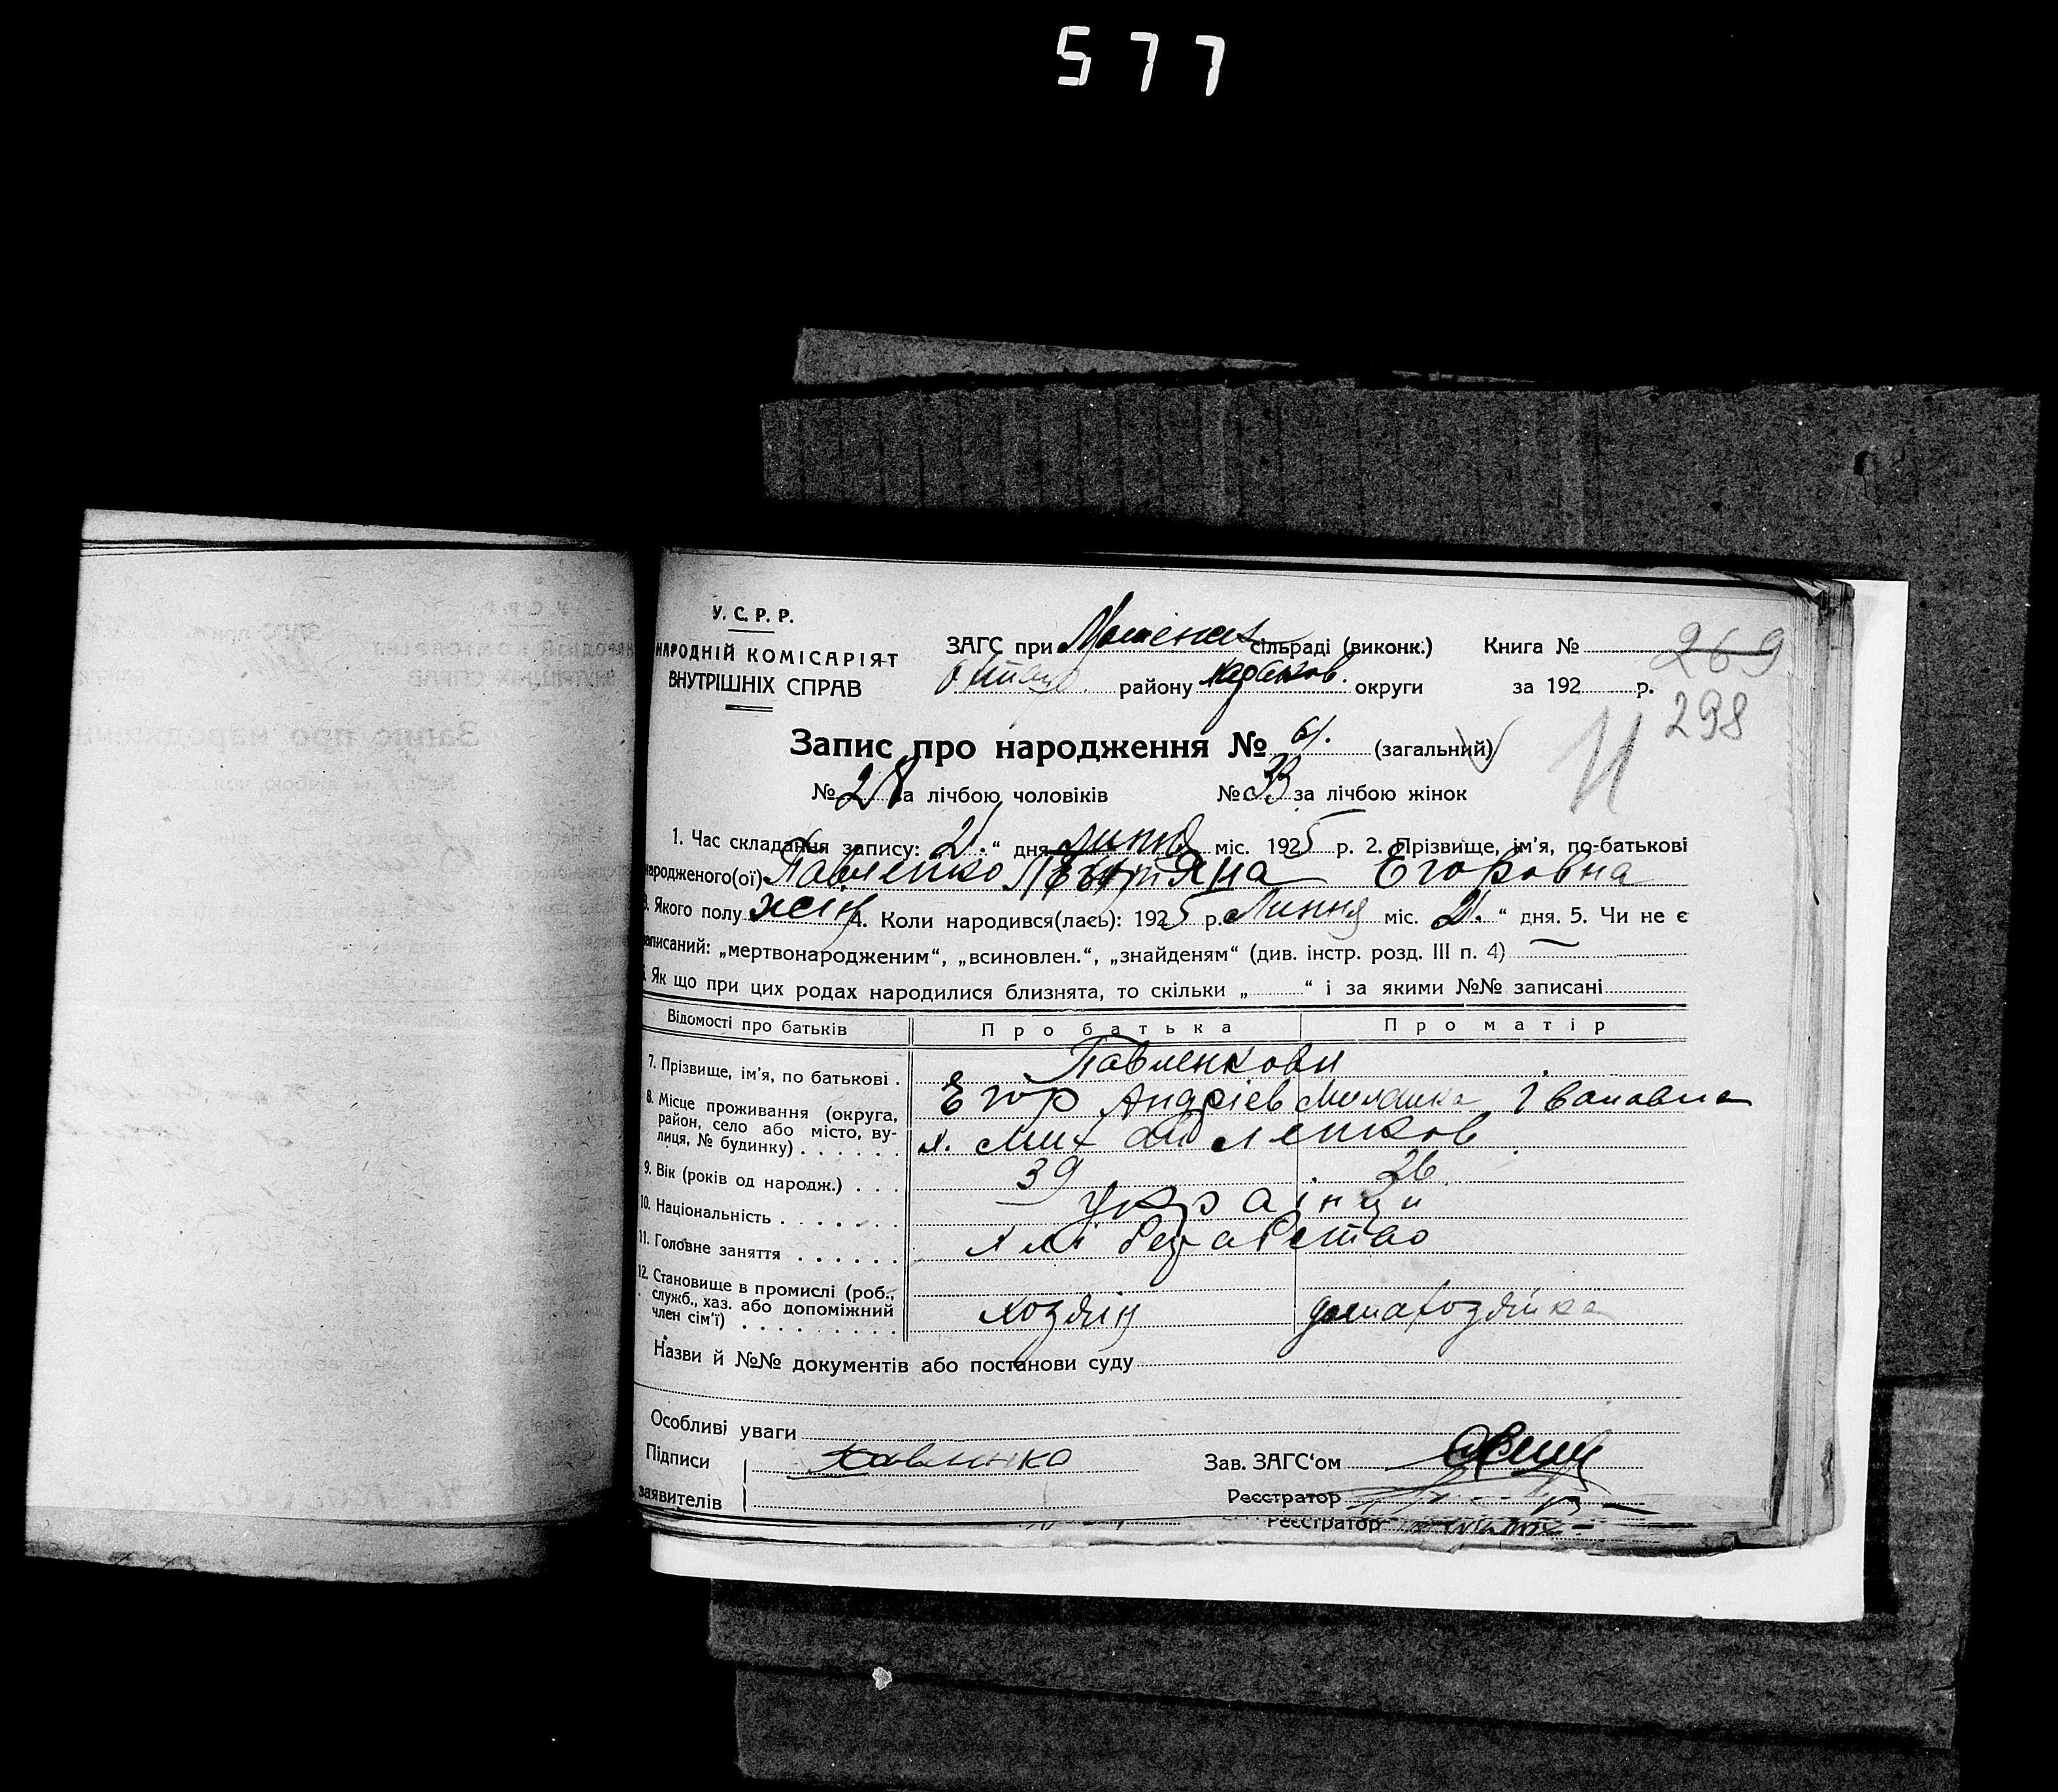 577
У. С. Р. Р.
НАРОДНІЙ КОМІСАРІЯТ
ВНУТРІШНІХ СПРАВ
ЗАГС при сільраді (виконк.) Книга № 269
району округи за 192 р.
298
Запис про народження № 61. (загальний)
№ 28 за лічбою чоловіків № 33 за лічбою жінок
1. Час складання запису: 21. “ дня липня міс. 1925 р. 2. Прізвище, ім'я, по-батькові
народженого(ої) Павленко Єгоровна
3. Якого полу жін 4. Коли народився(лась): 1925 р. Липня міс. 21. “ дня. 5. Чи не є
записаний: „мертвонародженим“, „всиновлен.“, „знайденям“ (див. інстр. розд. III п. 4)
6. Як що при цих родах народилися близнята, то скільки „ “ і за якими №№ записані
Відомості про батьків Про батька Про матір
7. Прізвище, ім'я, по батькові . Павленкови
Єгор Андрієв Меланка Івановна
8. Місце проживання (округа,
район, село або місто, ву-
лиця, № будинку) . . . . . . х.
9. Вік (років од народж.) . . . 39 26
10. Національність . . . . . . . Українци
11. Головне заняття . . . . . . хліборобство
12. Становище в промислі (роб.,
служб., хаз. або допоміжний
член сім'ї) . . . . . . . . . . хозяін домахозяйка
Назви й №№ документів або постанови суду
Особливі уваги
Підписи Павленко Зав. ЗАГС'ом
заявителів Реєстратор
Реєстратор